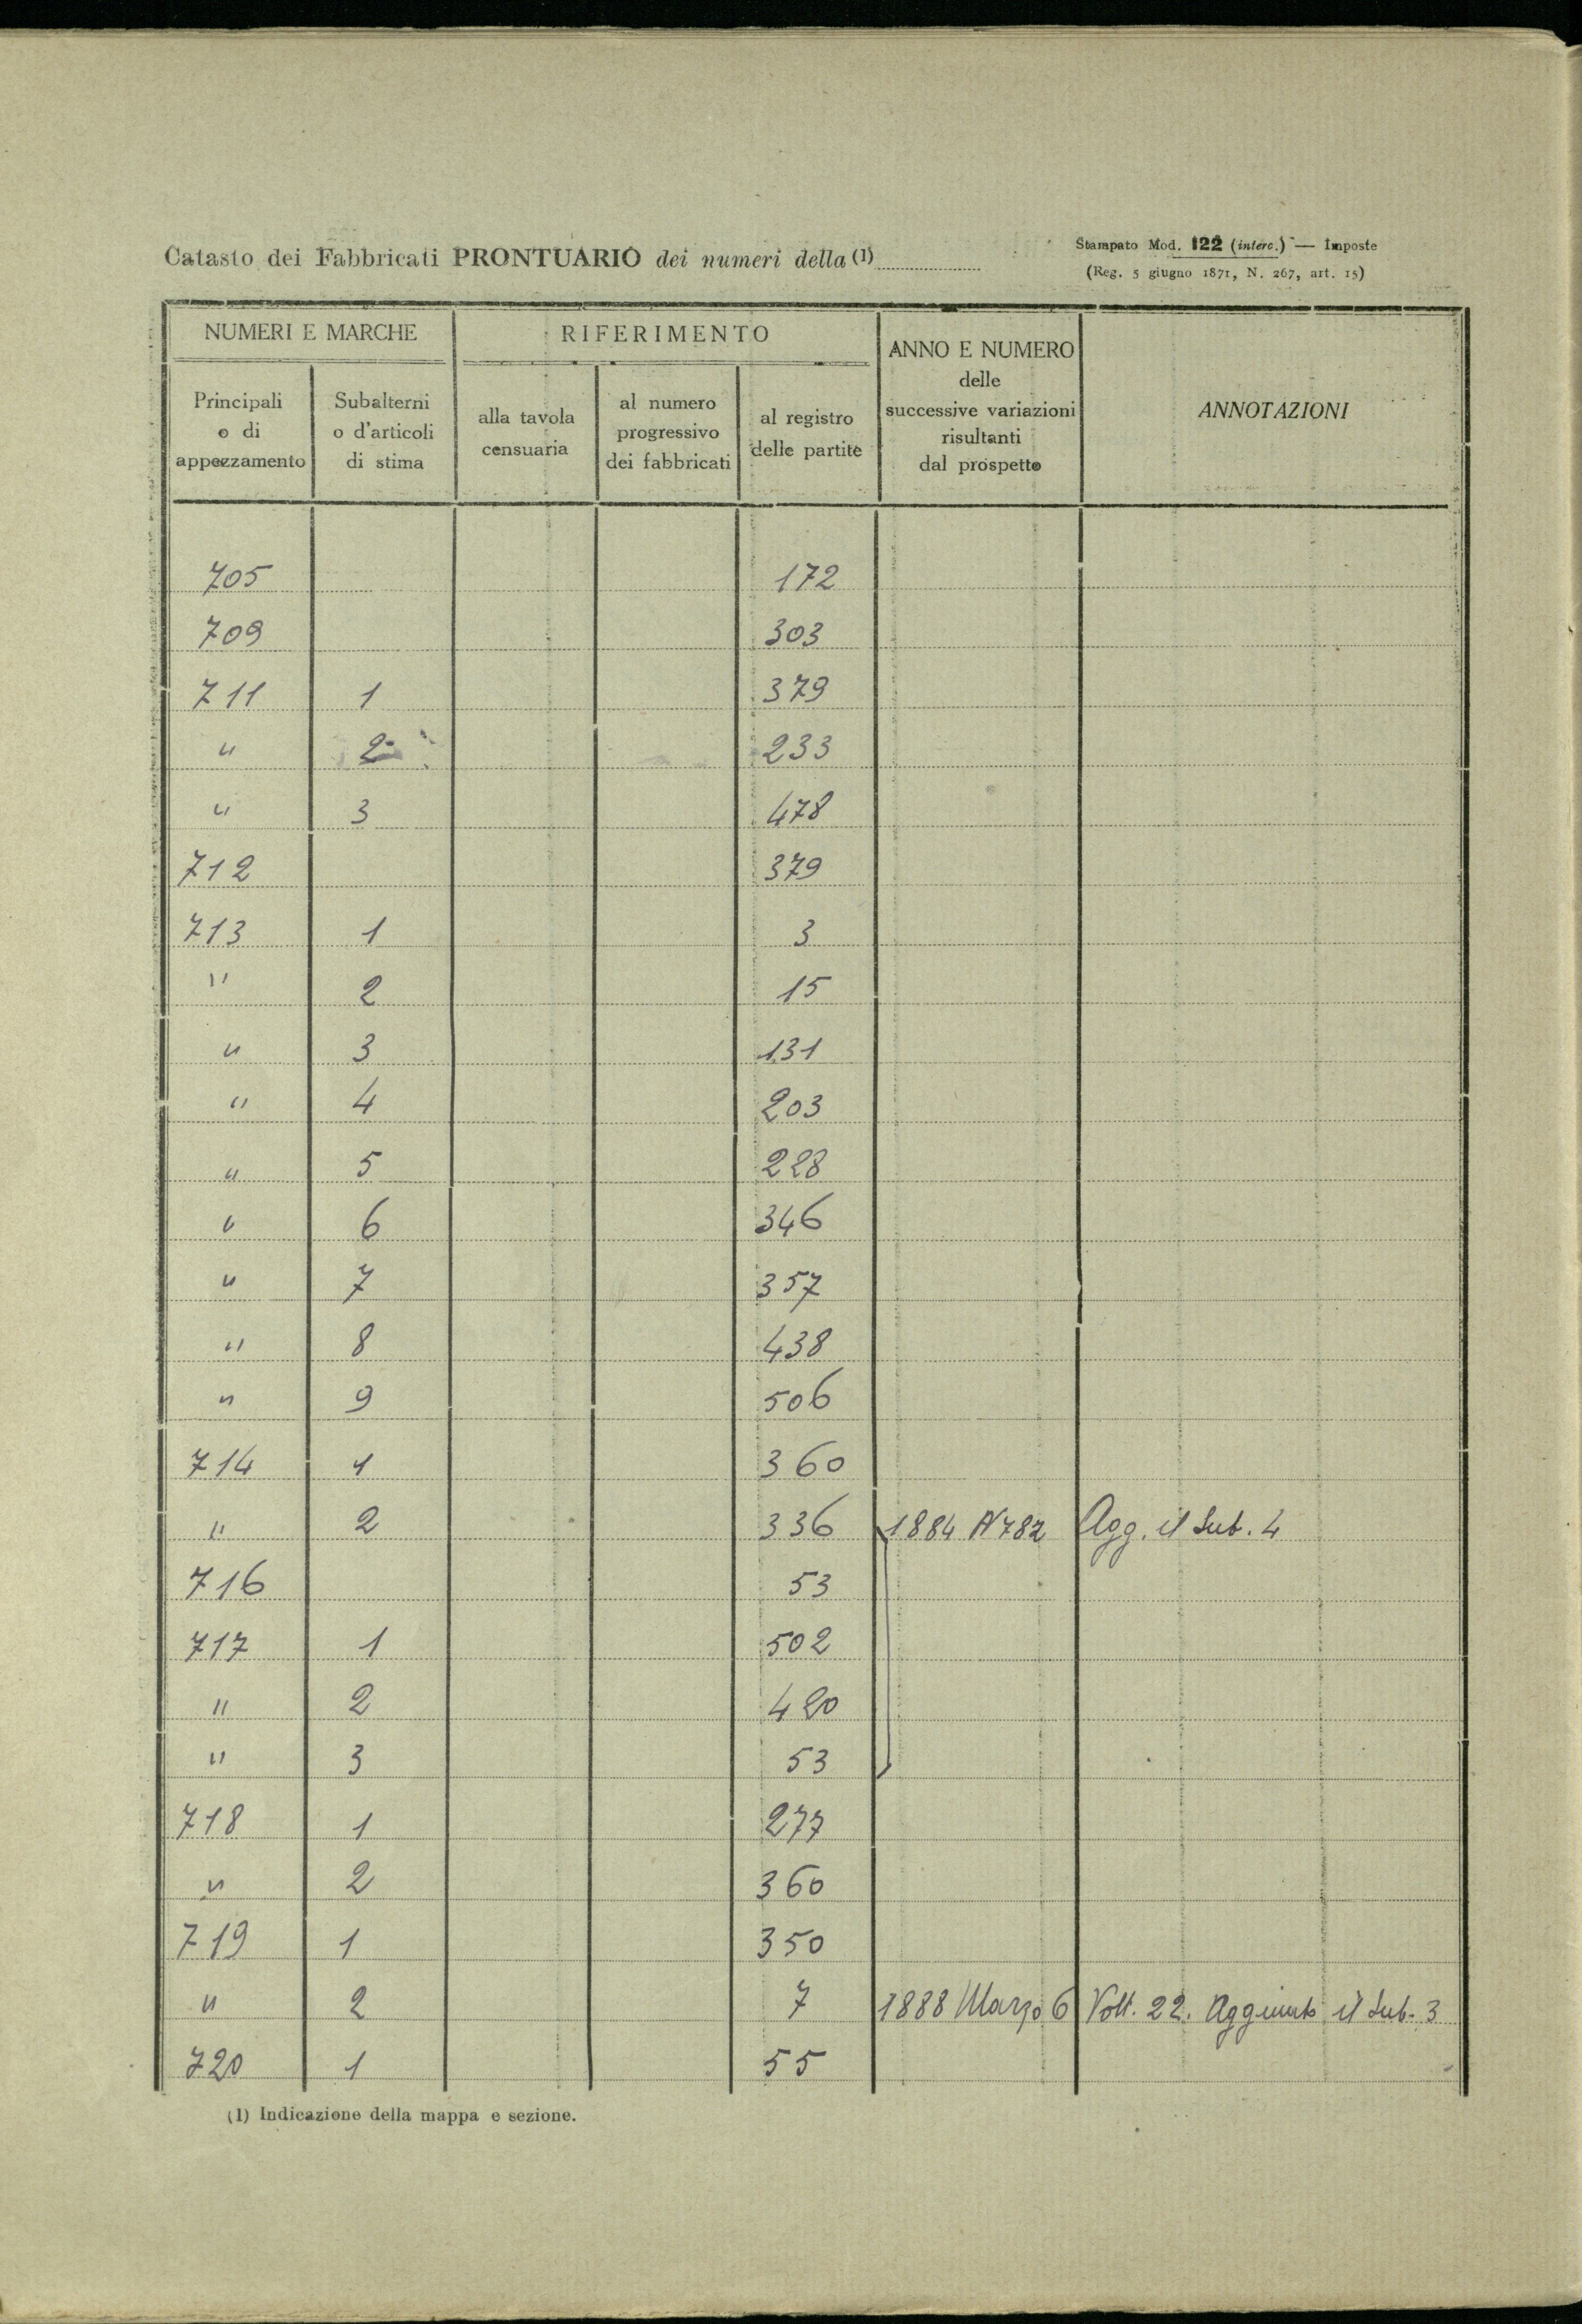 Catasto dei Fabbricati PRONTUARIO dei numeri della (1)
Stampato Mod. 122 (interc.) — Imposte
(Reg. 5 giugno 1871, N. 267, art. 15)
NUMERI E MARCHE
RIFERIMENTO
ANNO E NUMERO
delle
successive variazioni
risultanti
dal prospetto
ANNOTAZIONI
Principali
o di
appezzamento
Subalterni
o d'articoli
di stima
alla tavola
censuaria
al numero
progressivo
dei fabbricati
al registro
delle partite
705 172
709 303
711 1 379
" 2 233
" 3 478
712 379
713 1 3
" 2 15
" 3 131
" 4 203
" 5 228
" 6 346
" 7 357
" 8 438
" 9 506
714 1 360
" 2 336 1884 N 782 Agg. il Sub. 4
716 53
717 1 502
" 2 420
" 3 53
718 1 277
" 2 360
719 1 350
" 2 7 1888 Marzo 6 Volt. 22. Aggiunto il Sub. 3
720 1 55
(1) Indicazione della mappa e sezione.